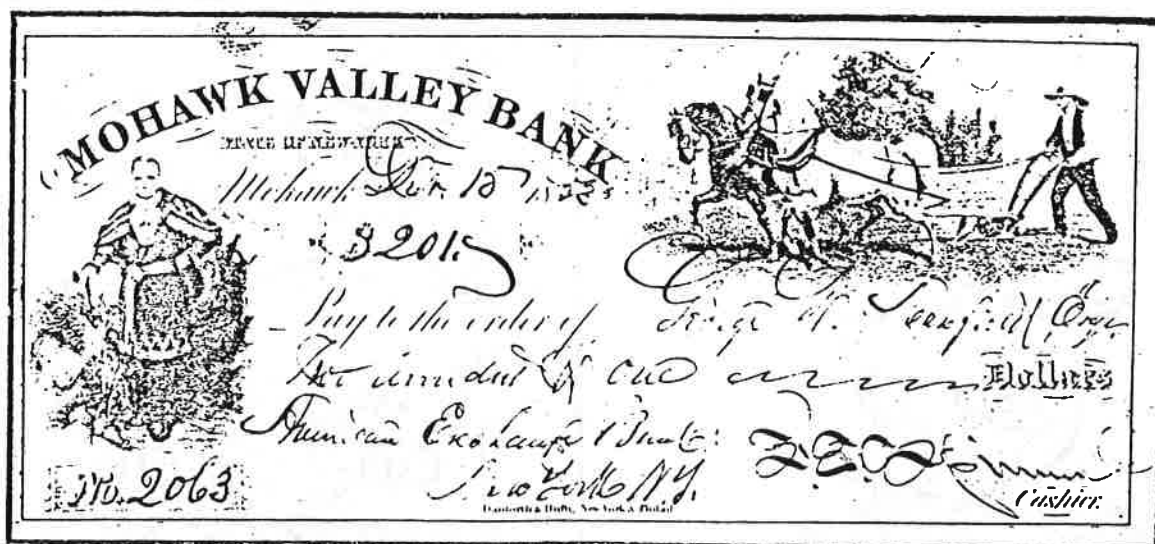 MOHAWK VALLEY BANK
STATE OF NEW-YORK
Mohawk 15
$201.
Pay to the order of George
Two hundred & one Dollars
American Exchange Bank
New York N.Y.
No. 2063
Cashier.
Danforth & Hufty, New York & Philad.